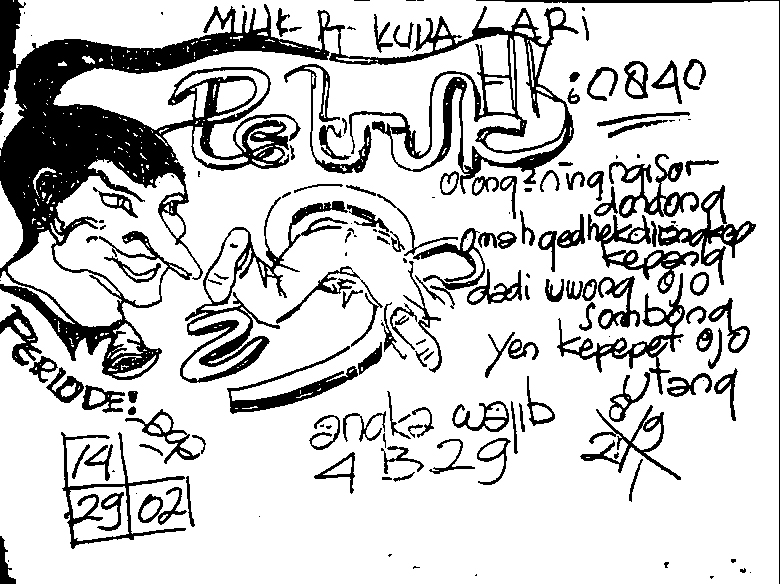 MILIK PT KUDA LARI
Petruk
HK: 0840
orong2 ning ngisor
dondong
omah gedhek dirangkep
kepang
dadi uwong ojo
sombong
yen kepepet ojo
utang
PERIODE:
angka wajib
4 B 29
14
29 02
8
2 9
1